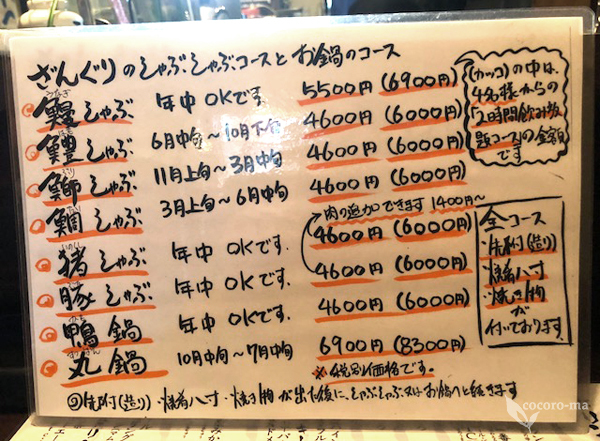 ざんぐりのしゃぶしゃぶコースとお鍋のコース
うなぎ
鰻しゃぶ 年中OKです 5500円(6900円)
はも
鱧しゃぶ 6月中旬〜10月下旬 4600円(6000円)
ぶり
鰤しゃぶ 11月上旬〜3月中旬 4600円(6000円)
鯛しゃぶ 3月上旬〜6月中旬 4600円(6000円)
肉の追加できます 1400円〜
いのしし
猪しゃぶ 年中OKです. 4600円(6000円)
豚しゃぶ 年中OKです. 4600円(6000円)
鴨鍋 年中OKです. 4600円(6000円)
丸鍋 10月中旬〜7月中旬 6900円(8300円)
※税別価格です。
(カッコ)の中は、
4名様からの
2時間飲み放
題コースの金額
です
全コース
・先附(造り)
・焼肴八寸
・焼き物
が
付いております.
◎先附(造り)・焼肴八寸・焼き物が出た後に、しゃぶしゃぶ又はお鍋へと続きます
cocoro-ma